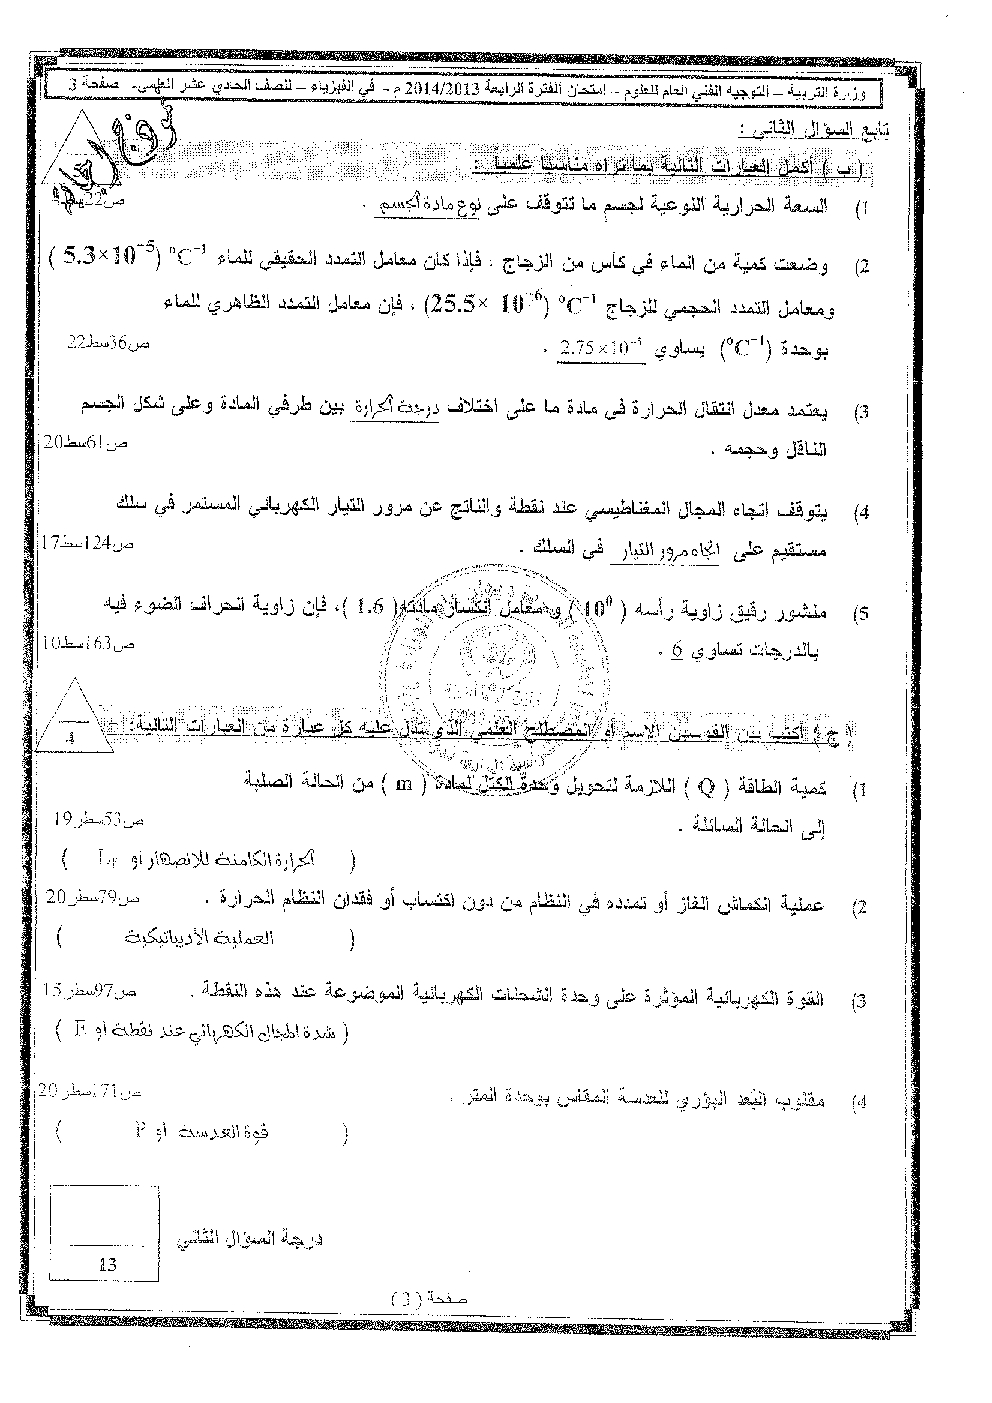 وزارة التربية – التوجيه الفني العام للعلوم – امتحان الفترة الرابعة 2014/2013 م – في الفيزياء – للصف الحادي عشر العلمي – صفحة 3
تابع السؤال الثاني :
( ب ) أكمل العبارات التالية بما تراه مناسبا علميا :
1) السعة الحرارية النوعية لجسم ما تتوقف على نوع مادة الجسم .
2) وضعت كمية من الماء في كأس من الزجاج ، فإذا كان معامل التمدد الحقيقي للماء (5.3×10⁻⁵) °C⁻¹
ومعامل التمدد الحجمي للزجاج (25.5× 10⁻⁶) °C⁻¹ ، فإن معامل التمدد الظاهري للماء
بوحدة (°C⁻¹) يساوي 2.75×10⁻⁵ .
ص36سط22
3) يعتمد معدل انتقال الحرارة في مادة ما على اختلاف درجة الحرارة بين طرفي المادة وعلى شكل الجسم
الناقل وحجمه .
ص61سط20
4) يتوقف اتجاه المجال المغناطيسي عند نقطة والناتج عن مرور التيار الكهربائي المستمر في سلك
مستقيم على اتجاه مرور التيار في السلك .
ص124سط17
5) منشور رقيق زاوية رأسه ( 10⁰ ) و معامل انكسار مادته ( 1.6 )، فإن زاوية انحراف الضوء فيه
بالدرجات تساوي 6 .
ص163سط10
4
( ج ) اكتب بين القوسين الاسم أو المصطلح العلمي الذي تدل عليه كل عبارة من العبارات التالية:
1) كمية الطاقة ( Q ) اللازمة لتحويل وحدة الكتل لمادة ( m ) من الحالة الصلبة
إلى الحالة السائلة .
ص53سطر19
( الحرارة الكامنة للانصهار أو L_F )
2) عملية انكماش الغاز أو تمدده في النظام من دون اكتساب أو فقدان النظام الحرارة .
ص79سطر20
( العملية الأديباتيكية )
3) القوة الكهربائية المؤثرة على وحدة الشحنات الكهربائية الموضوعة عند هذه النقطة .
ص97سطر15
( شدة المجال الكهربائي عند نقطة أو E )
4) مقلوب البُعد البؤري للعدسة المقاس بوحدة المتر .
ص171سطر20
( قوة العدسة أو P )
درجة السؤال الثاني
13
صفحة ( 3 )